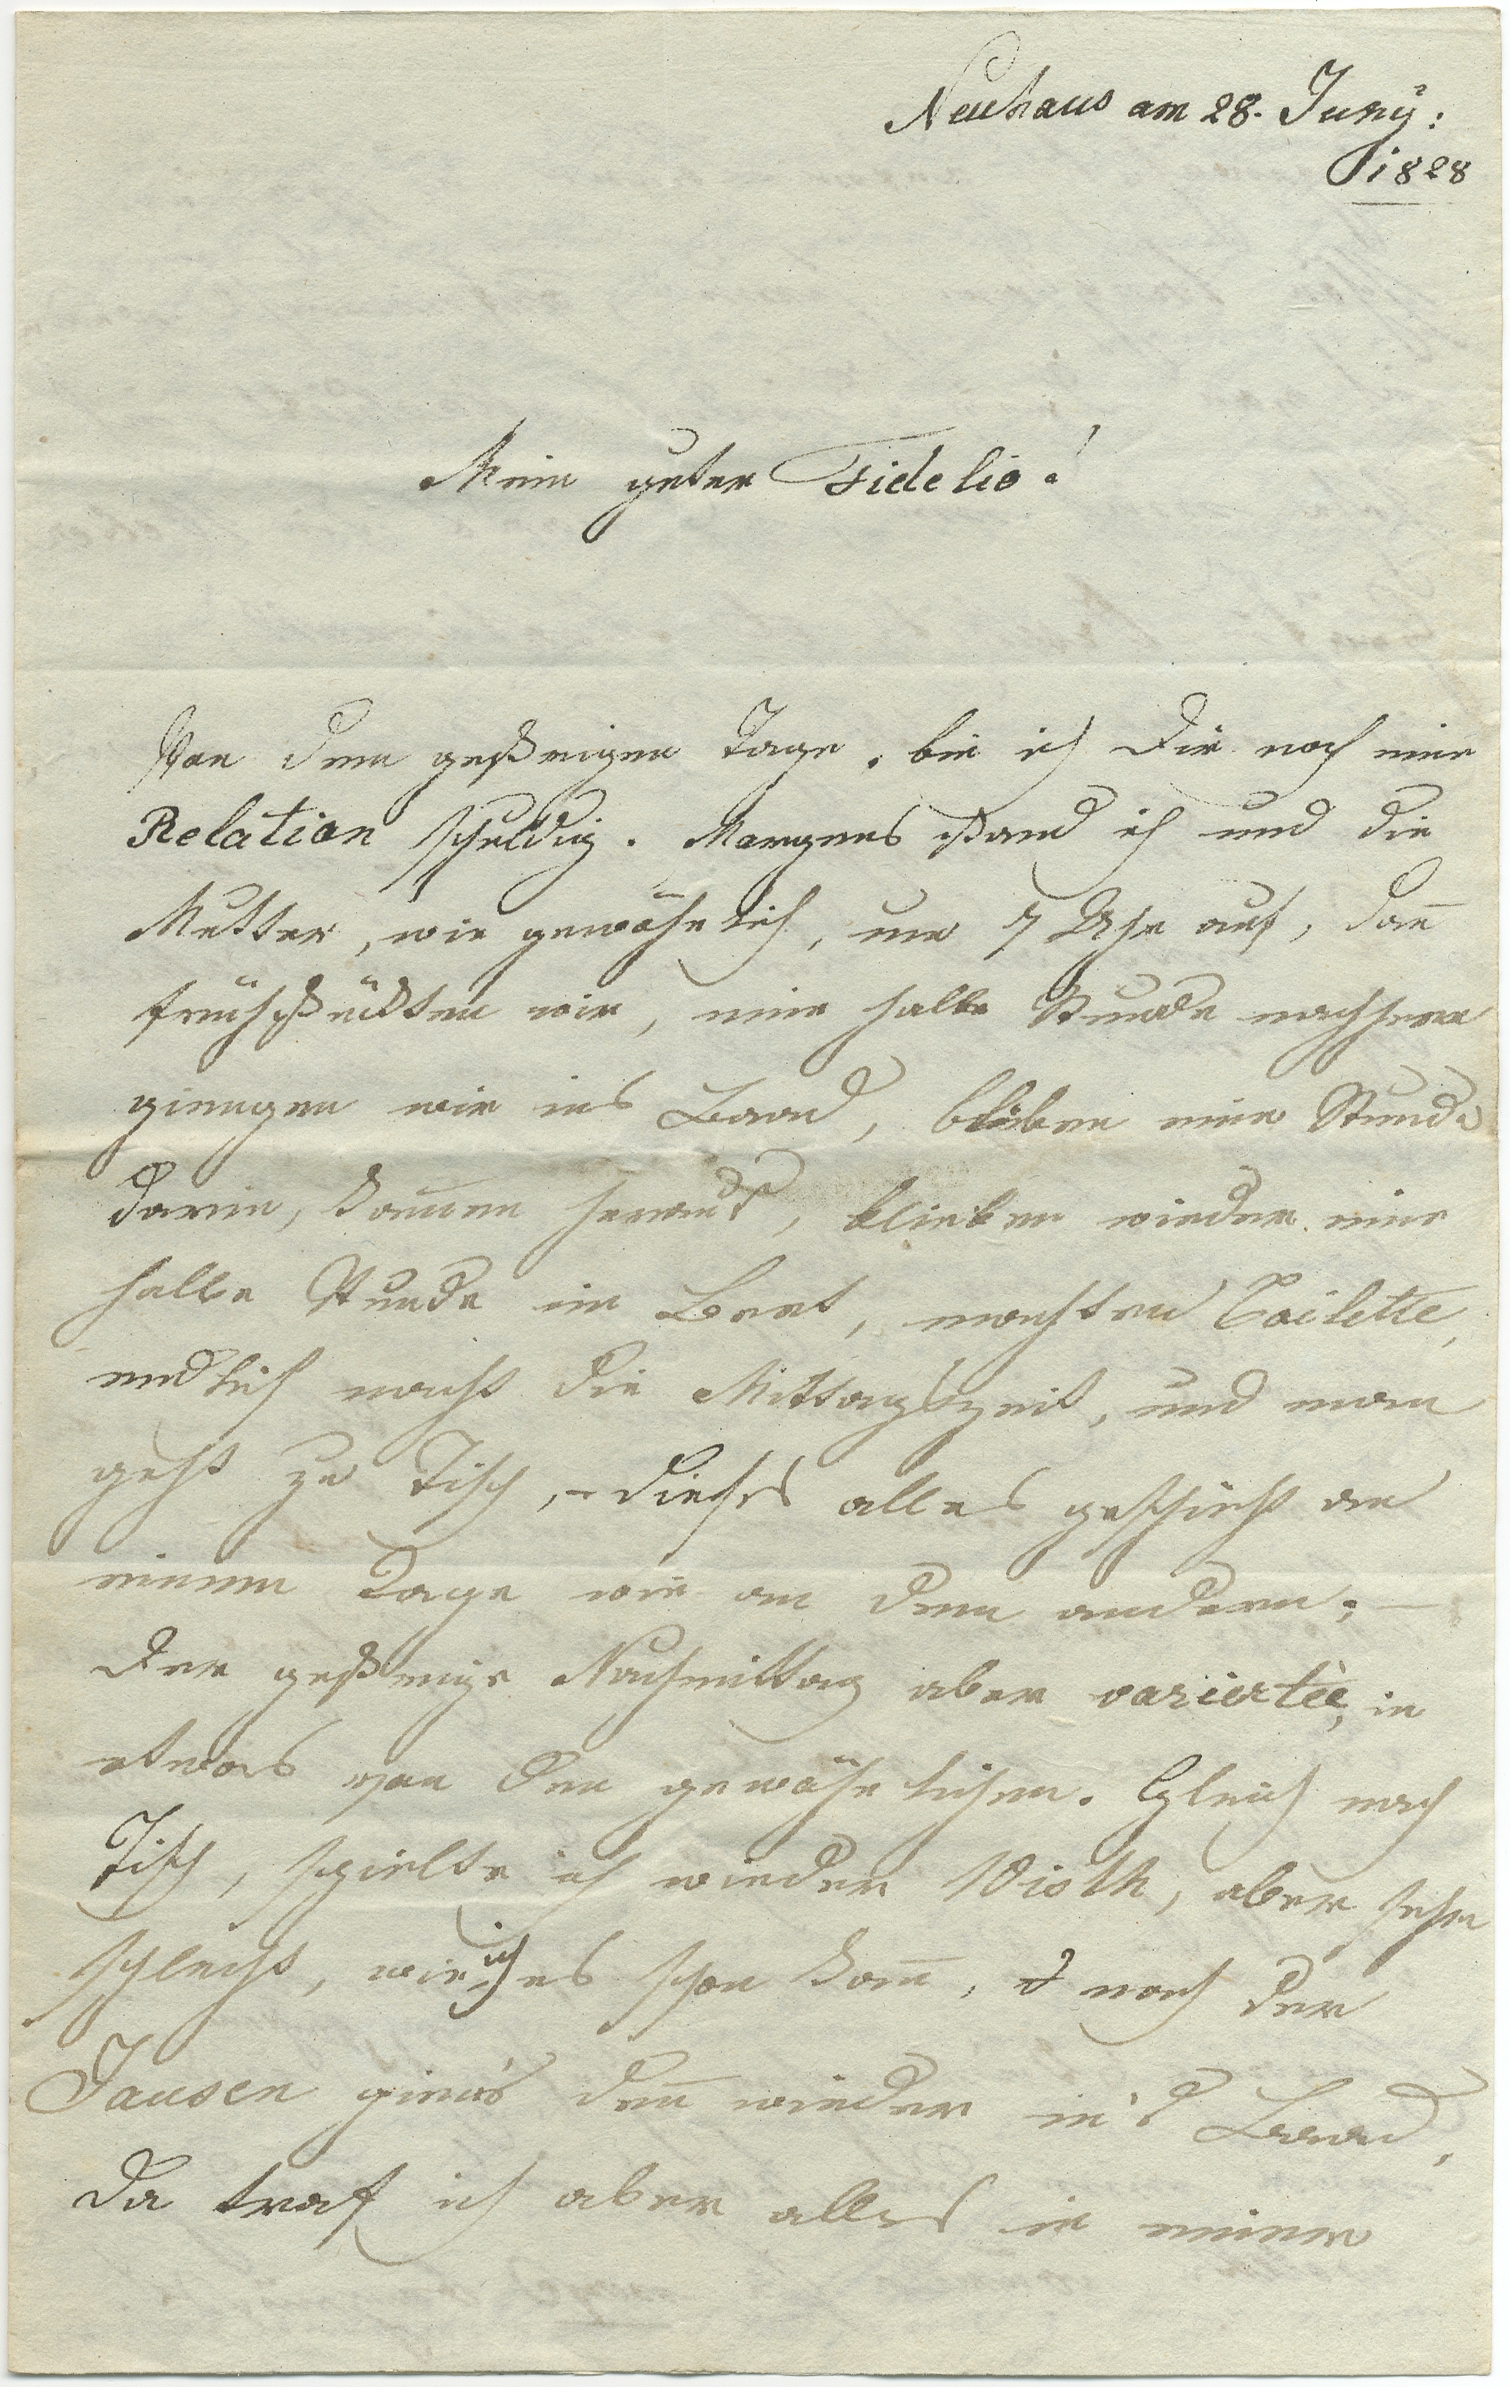 Neuhaus am 28. Juny:
1828
Mein guter Fidelio!
Von dem gestrigen Tage, bin ich Dir noch eine
Relation schuldig. Morgens stand ich und die
Mutter, wie gewöhnlich, um 7 Uhr auf, dan̅
frühstückten wir, eine halbe Stunde nachher
giengen wir ins Baad, blieben eine Stunde
darin, kam̅en heraus, blieben wieder eine
halbe Stunde im Bett, machten Toilette,
endlich naht die Mittagszeit, und man
geht zu Tisch, – dieses alles geschieht an
einem Tage wie an dem andern; –
Der gestrige Nachmittag aber variertè, in
etwas von den gewöhnlichen. Gleich nach
Tisch, spielte ich wieder Visth, aber sehr
schlecht, wie ich es schon kan̅, & nach der
Jausen gieng's den̅ wieder in's Baad,
da traf ich aber alles in meiner